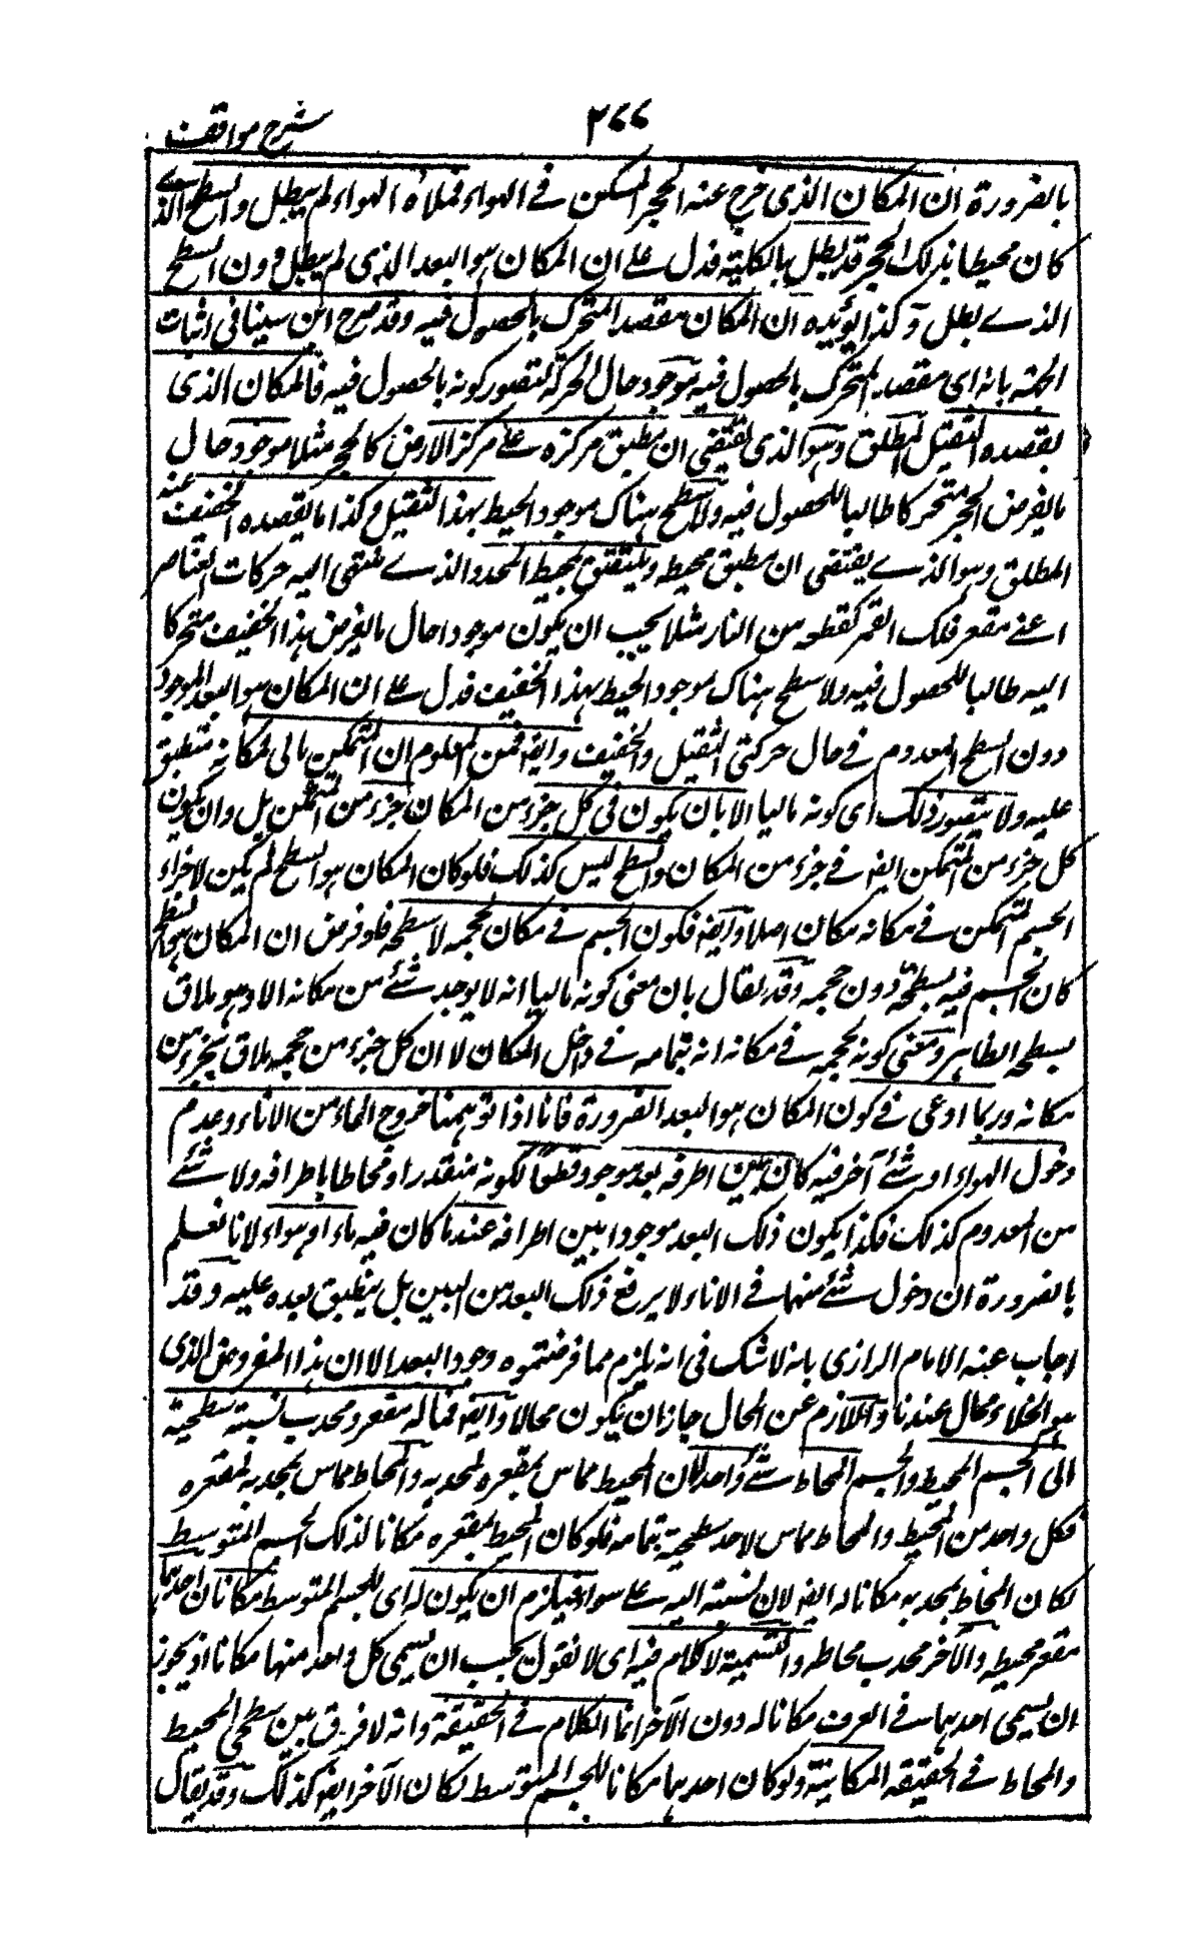 ٢٧٧
شرح مواقف
بالضرورة ان المكان الذى خرج عنه الحجر المسكن فے الهواء فملأه الهواء لم يبطل والسطح الذے
كان محيطا بذلك الحجر قد بطل بالكلية فدل علے ان المكان هو البعد الذى لم يبطل دون السطح
الذے بطل وكذا يؤيده ان المكان مقصد المتحرك بالحصول فيه وقد صرح ابن سينا فى اثبات
الجهة بانه اى مقصد المتحرك بالحصول فيه موجود حال الحركة لتصور كونه بالحصول فيه فالمكان الذى
يقصده الثقيل المطلق وهو الذى يقتضى ان ينطبق مركزه علے مركز الارض كالحجر مثلا موجود حال
ما يفرض الحجر متحركا طالبا للحصول فيه ولا سطح هناك موجود الحيط بهذا الثقيل وكذا ما يقصده الخفيف عنه
المطلق وهو الذے يقتضى ان ينطبق محيطه ويلتصق بمحيط المحدد الذے تنتهى اليه حركات العناصر
اعنے مقعر فلك القمر كقطعه من النار مثلا يجب ان يكون موجودا حال ما يفرض هذا الخفيف متحركا
اليه طالبا للحصول فيه ولا سطح هناك موجود الحيط بهذا الخفيف فدل علے ان المكان هو البعد الموجود
دون السطح المعدوم فے حال حركتى الثقيل والخفيف وايضا فمن المعلوم ان المتمكن مالى لمكانه منطبق
عليه ولا يتصور ذلك اى كونه ماليا الا بان يكون فى كل جزء من المكان جزء من المتمكن بل وان يكون
كل جزء من المتمكن ايضا فے جزء من المكان والسطح ليس كذلك فلو كان المكان هو السطح لم يكن لاجزاء
الجسم المتمكن فے مكانه مكان اصلا وايضا فكون الجسم فے مكان بحجمه لا بسطحه فلو فرض ان المكان هو السطح
كان الجسم فيه بسطحه دون حجمه وقد يقال بان معنى كونه ماليا انه لا يوجد شئے من مكانه الا وهو ملاق
بسطحه الظاهر ومعنى كونه بحجمه فے مكانه انه بتمامه فے داخل المكان لا ان كل جزء من حجمه ملاق بجزء من
مكانه وربما ادعى فے كون المكان هو البعد الضرورة فانا اذا توهمنا خروج الماء من الاناء وعدم
دخول الهواء او شئے آخر فيه كان بين اطرافه بعد موجود قطعا لكونه متقدرا ومحاطا باطرافه ولا شئے
من المعدوم كذلك فكذا يكون ذلك البعد موجودا بين اطرافه عند ما كان فيه ماء او هواء لانا نعلم
بالضرورة ان دخول شئے منها فے الاناء لا يرفع ذلك البعد من البين بل ينطبق بعده عليه وقد
اجاب عنه الامام الرازى بانه لا شك فى انه يلزم مما فرضتموه وجود البعد الا ان هذا المفروض الذى
هو الخلاء محال عندنا واللازم عن المحال جاز ان يكون محالا وايضا فماله مقعر ومحدب نسبته سطحية
الى الجسم المحيط والجسم المحاط شئے واحد لان المحيط مماس بمقعره لمحدبه والمحاط مماس بمحدبه لمقعره
فكل واحد من المحيط والمحاط مماس لاحد سطحية بتمامه فلو كان المحيط بمقعره مكانا لذلك الجسم المتوسط
لكان المحاط بمحدبه مكانا له ايضا لان نسبته اليه علے سواء فيلزم ان يكون له اى للجسم المتوسط مكانان احدهما
مقعر محيطه والآخر محدب محاطه والتسمية لا كلام فيه اى لا نقول يجب ان يسمى كل واحد منهما مكانا اذ يجوز
ان يسمى احدهما فے العرف مكانا له دون الآخر انما الكلام فے الحقيقة وانه لا فرق بين سطحى المحيط
والمحاط فے الحقيقه المكانية ولو كان احدهما مكانا للجسم المتوسط لكان الآخر ايضا كذلك وقد يقال